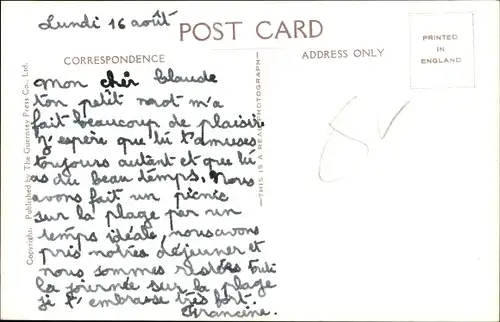 Lundi 16 août
POST CARD
PRINTED
IN
ENGLAND
CORRESPONDENCE
ADDRESS ONLY
mon cher Claude
ton petit mot m'a
fait beaucoup de plaisir
J'espère que tu t'amuses
toujours autant et que tu
as du beau temps. Nous
avons fait un picnic
sur la plage par un
temps idéale, nous avons
pris notres déjeuner et
nous sommes restées tout
la journée sur la plage
je t'embrasse très fort.
Francine.
THIS IS A REAL PHOTOGRAPH
Copyright. Published by The Guernsey Press Co., Ltd.